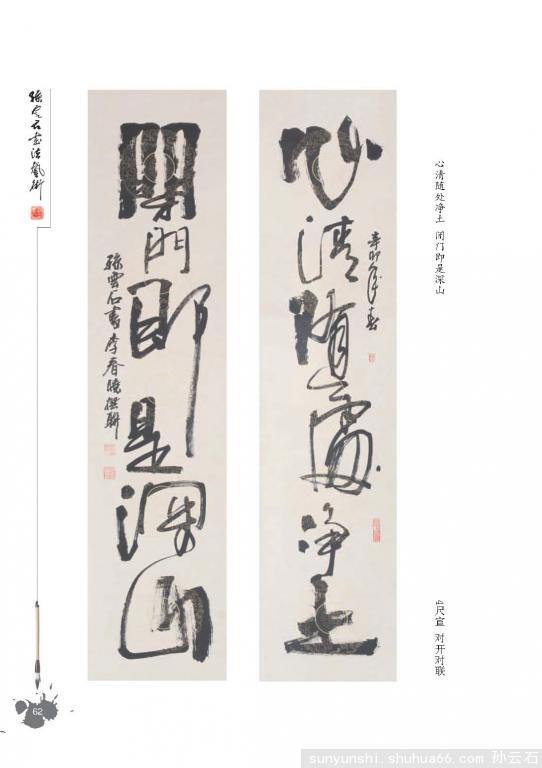 心清随处净土 闭门即是深山
尺宣 对开对联
心清随處净土
閉門即是深山
孫雲石書李春曉撰聯
孫雲石書法藝術
62
sunyunshi.shuhua66.com 孙云石